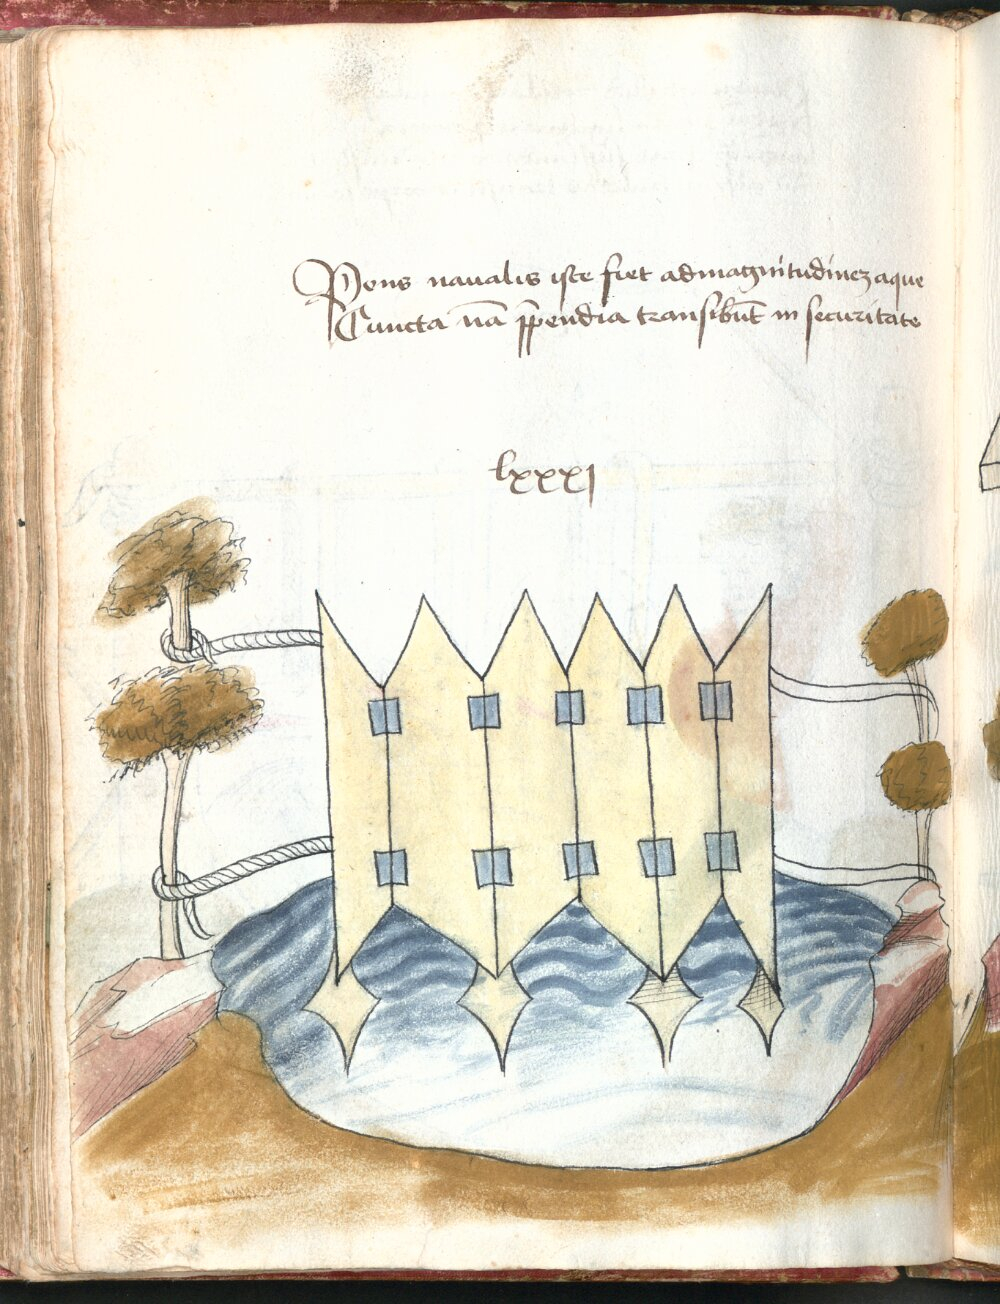 Pons naualis iste fiet ad magnitudinez aque
Cuncta nā p̱pendia transibūt in securitate
lxxxj